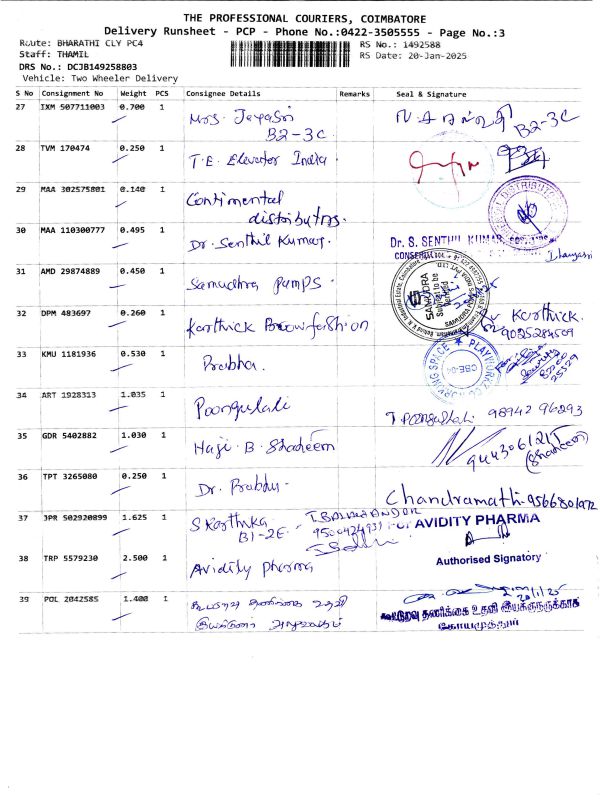 THE PROFESSIONAL COURIERS, COIMBATORE
Delivery Runsheet - PCP - Phone No.:0422-3505555 - Page No.:3
Route: BHARATHI CLY PC4 RS No.: 1492588
Staff: THAMIL RS Date: 20-Jan-2025
DRS No.: DCJB149258803
Vehicle: Two Wheeler Delivery
S No Consignment No Weight PCS Consignee Details Remarks Seal & Signature
27 IXM 507711003 0.700 1 Mrs. Jayasri
B2-3C B2-3C
28 TVM 170474 0.250 1 T.E. Elevator India
29 MAA 302575801 0.140 1 Continental
distributors.
30 MAA 110300777 0.495 1 Dr. Senthil Kumar. Dr. S. SENTHIL KUMAR
31 AMD 29874889 0.450 1 Samudhra pumps. SAMUDRA
32 DPM 483697 0.260 1 Karthick Karthick.
9025284509
33 KMU 1181936 0.530 1 Prabha. PLAY CBE-04 SPACE
34 ART 1928313 1.035 1 Poongulali 98942 96293
35 GDR 5402882 1.030 1 Haji. B. Shaheem (Shaheem)
36 TPT 3265080 0.250 1 Dr. Prabhu. Chandramathi
37 JPR 502920899 1.625 1 S Karthika
B1-2E AVIDITY PHARMA
38 TRP 5579230 2.500 1 Avidity pharma Authorised Signatory
39 POL 2042585 1.400 1 கூட்டுறவு தணிக்கை உதவி 20/1/25
கூட்டுறவு தணிக்கை உதவி இயக்குநருக்காக
கோயமுத்தூர்